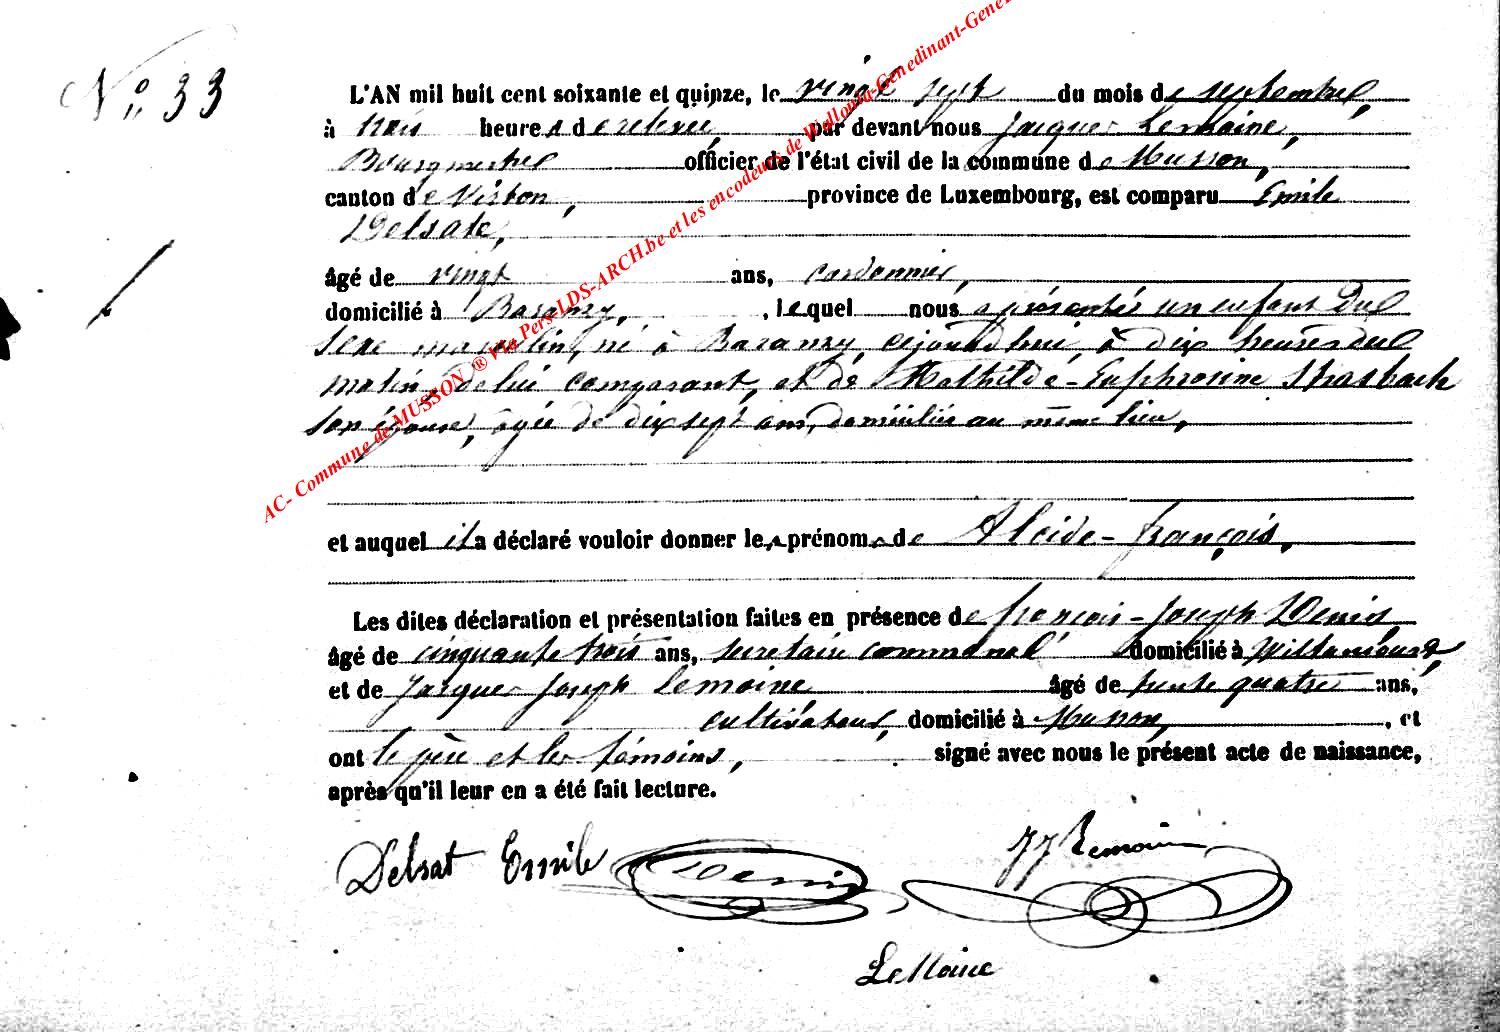 N° 33
L'AN mil huit cent soixante et quinze, le vingt sept du mois de septembre,
à trois heures de relevée, par devant nous Jacques Lemoine,
Bourgmestre officier de l'état civil de la commune de Musson,
canton de Virton, province de Luxembourg, est comparu Emile
Delsate,
âgé de vingt ans, cordonnier,
domicilié à Baranzy, lequel nous a présenté un enfant du
sexe masculin, né à Baranzy, cejourd'hui, à dix heures du
matin, de lui comparant, et de Mathilde-Euphrosine Strasbach
son épouse, âgée de dix sept ans, domiciliée au même lieu,
et auquel il a déclaré vouloir donner les prénoms de Alcide-François,
Les dites déclaration et présentation faites en présence de François-Joseph Denis,
âgé de cinquante trois ans, secrétaire communal domicilié à Willancourt,
et de Jacques Joseph Lemoine âgé de trente quatre ans,
cultivateur, domicilié à Musson, et
ont le père et les témoins, signé avec nous le présent acte de naissance,
après qu'il leur en a été fait lecture.
Delsat Emile Denis JJ Lemoine
LeMoine
AC- Commune de MUSSON ® Via Pers-LDS-ARCH.be et les encodeurs de Wallonia-Genedinant-Gene